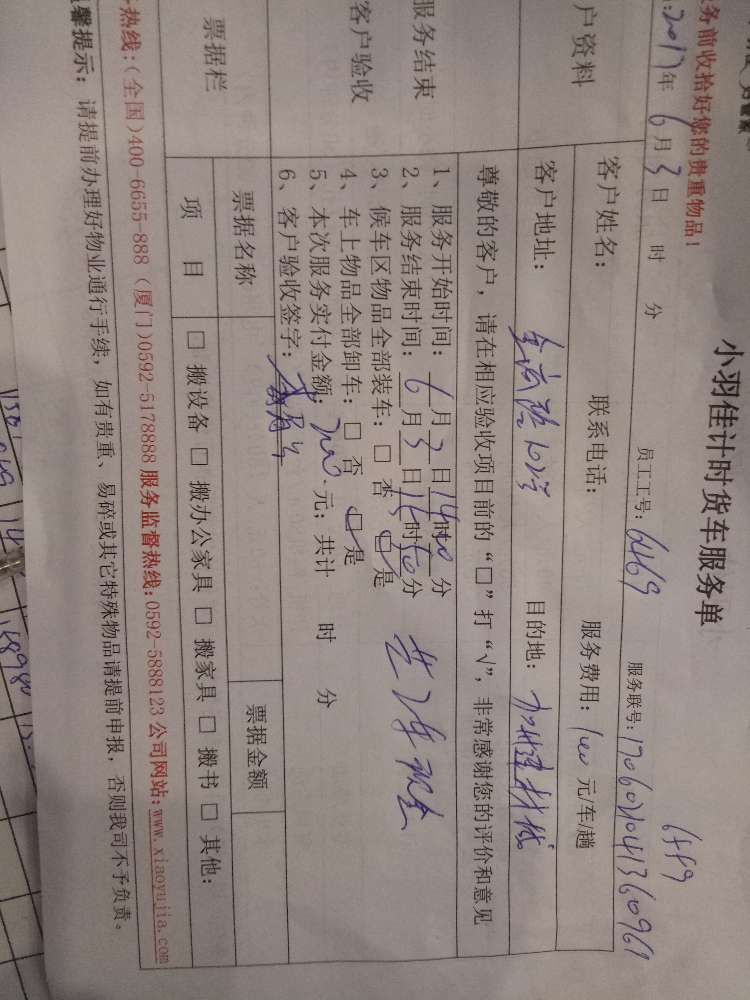 务前收拾好您的贵重物品!
小羽佳计时货车服务单
6449
:2017年6月3日 时 分 员工工号:6469 服务联号:
户资料 客户姓名: 联系电话: 服务费用:100元/车/趟
客户地址: 目的地:
尊敬的客户,请在相应验收项目前的“□”打“√”,非常感谢您的评价和意见
服务结束
客户验收
1、服务开始时间:6月3日14时 分
2、服务结束时间:6月3日 时 分
3、候车区物品全部装车:□ 否 □ 是
4、车上物品全部卸车:□ 否 □ 是
5、本次服务实付金额: 元;共计 时 分
6、客户验收签字:
票据栏 票据名称 票据金额
项 目 □ 搬设备 □ 搬办公家具 □ 搬家具 □ 搬书 □ 其他:
热线:(全国)400-6655-888 (厦门)0592-5178888 服务监督热线:0592-5888123 公司网站:www.xiaoyujia.com
馨提示:请提前办理好物业通行手续,如有贵重、易碎或其它特殊物品请提前申报,否则我司不予负责。